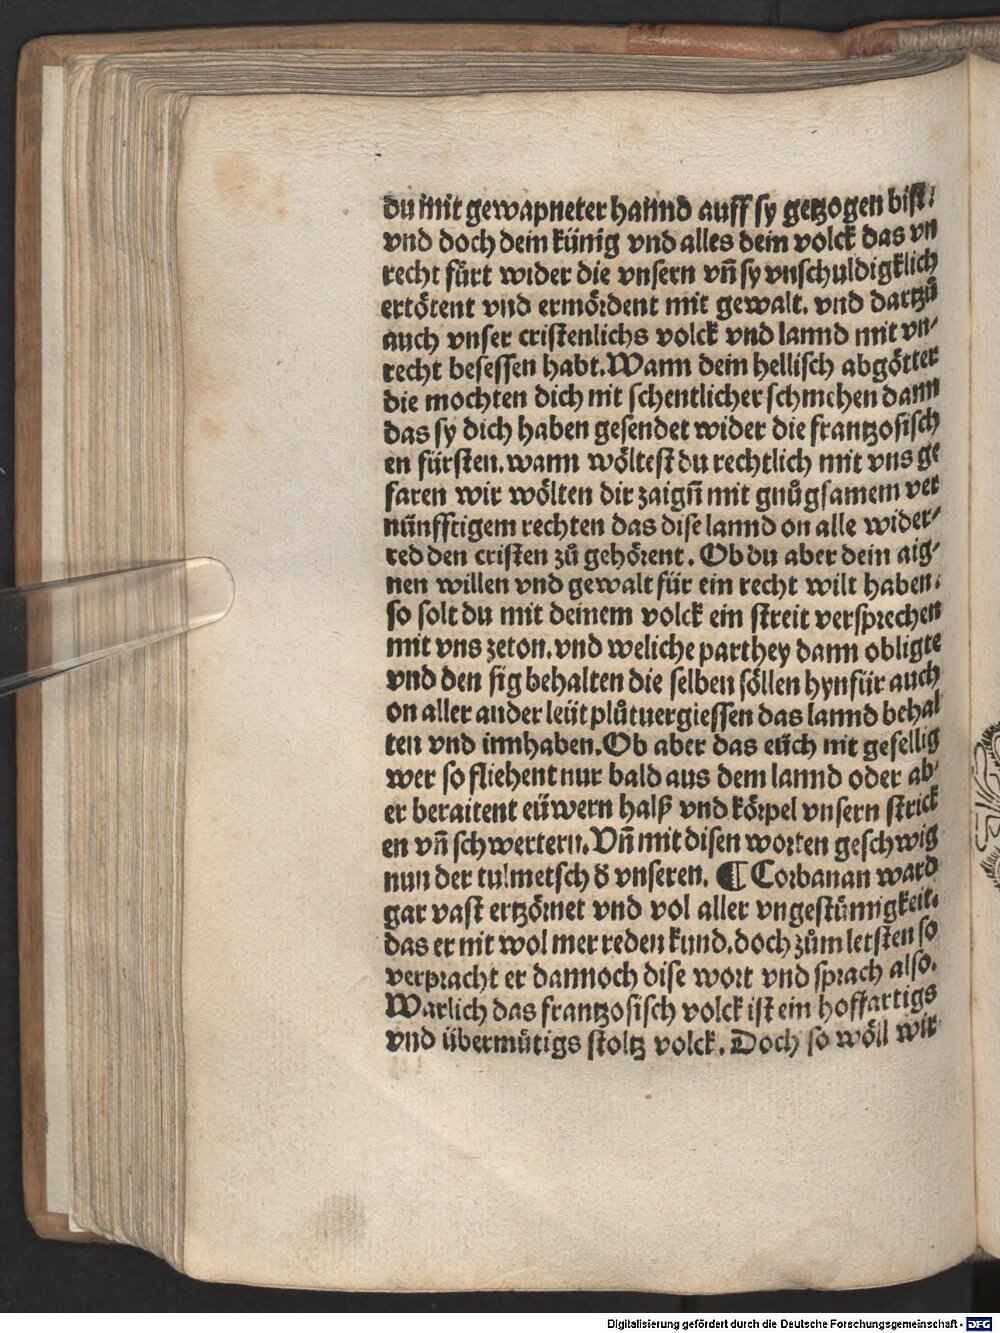 du mit gewapneter hannd auff sy getzogen bist.
vnd doch dein künig vnd alles dein volck das vn
recht fürt wider die vnsern vñ sy vnschuldigklich
ertötent vnd ermördent mit gewalt. vnd dartzů
auch vnser cristenlichs volck vnd lannd mit vn/
recht besessen habt. Wann dein hellisch abgötter
die mochten dich nit schentlicher schmehen dann
das sy dich haben gesendet wider die frantzosisch
en fürsten. wann wöltest du rechtlich mit vns ge
faren wir wölten dir zaigñ mit gnůgsamem ver
nünfftigem rechten das dise lannd on alle wider/
red den cristen zů gehörent. Ob du aber dein aig/
nen willen vnd gewalt für ein recht wilt haben.
so solt du mit deinem volck ein streit versprechen
mit vns zeton. vnd weliche parthey dann obligte
vnd den sig behalten die selben söllen hynfür auch
on aller ander leüt plůtuergiessen das lannd behal
ten vnd innhaben. Ob aber das eüch nit gesellig
wer so fliehent nur bald aus dem lannd oder ab/
er beraitent eüwern halß vnd körpel vnsern strick
en vñ schwertern. Vñ mit disen worten geschwig
nun der tulmetsch d̕ vnseren. ¶ Corbanan ward
gar vast ertzörnet vnd vol aller vngestümigkeit.
das er nit wol mer reden kund. doch zům letsten so
verpracht er dannoch dise wort vnd sprach also.
Warlich das frantzosisch volck ist ein hoffartigs
vnd übermütigs stoltz volck. Doch so wöll wir
Digitalisierung gefördert durch die Deutsche Forschungsgemeinschaft - DFG